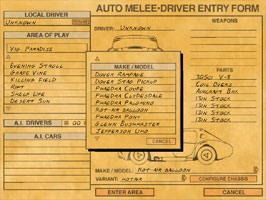 AUTO MELEE-DRIVER ENTRY FORM
LOCAL DRIVER
Unknown
DRIVER: Unknown
WEAPONS
AREA OF PLAY
Vig. Paradise
Evening Stroll
Grape Vine
Killing Field
Rift
Shelf Life
Desert Sun
MAKE / MODEL
Dover Rampage
Dover Stag Pickup
Phaedra Coupe
Phaedra Clydesdale
Phaedra Palomino
Hot air balloon
Phaedra Pony
Glenn Busmaster
Jefferson Limo
CANCEL
PARTS
305ci V-8
Coil Overs
Aircraft Box
13in Stock
13in Stock
13in Stock
13in Stock
A.I. DRIVERS
A.I. CARS
MAKE / MODEL: Hot air balloon
VARIANT: hotair
CONFIGURE CHASSIS
ENTER AREA
CANCEL